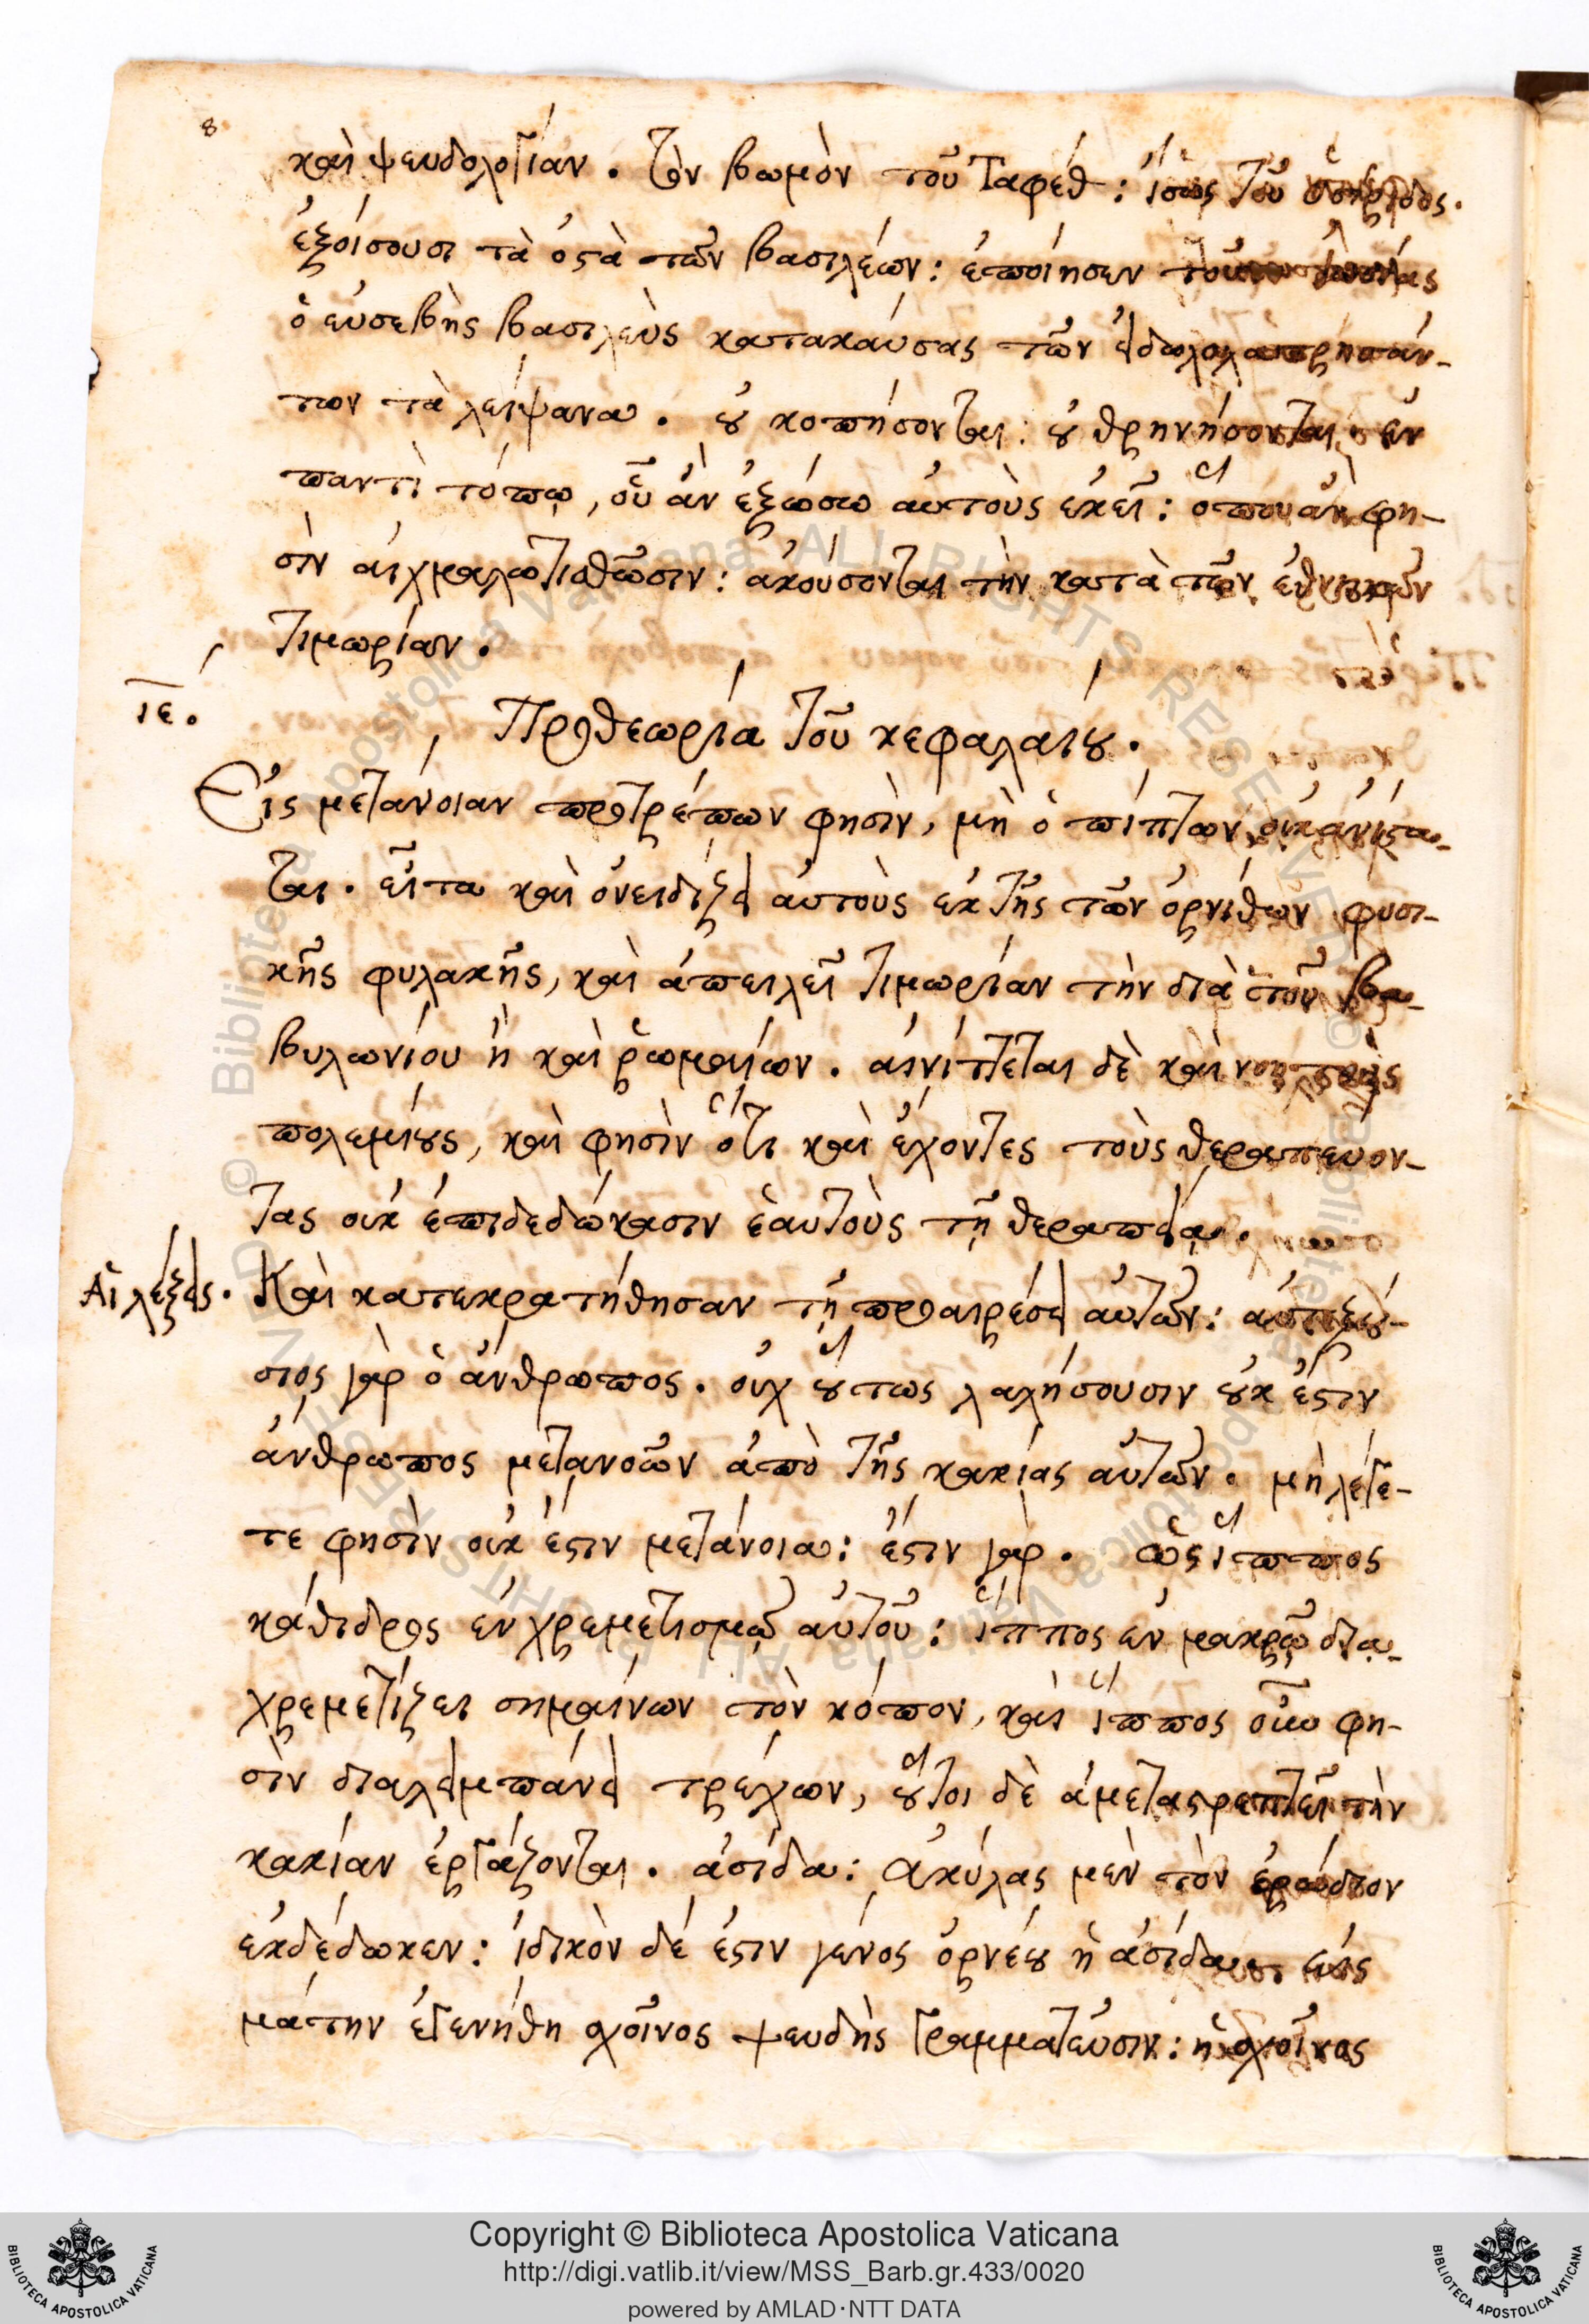 8
καὶ ψευδολογίαν. τὸν βωμὸν τοῦ Ταφέθ: ἴσως τοῦ
ἐξοίσουσι τὰ ὀστὰ τῶν βασιλέων: ἐποίησεν
ὁ εὐσεβὴς βασιλεὺς κατακαύσας τῶν εἰδωλολατρησάν-
των τὰ λείψανα. οὐ κοπήσονται: οὐ θρηνήσονται. ἐν
παντὶ τόπῳ, οὗ ἂν ἐξώσω αὐτοὺς ἐκεῖ: ὅπου ἂν φη-
σὶν αἰχμαλωτισθῶσιν: ἀκούσονται τὴν κατὰ τῶν ἐθνικῶν
τιμωρίαν.
ιε.
Προθεωρία τοῦ κεφαλαίου.
Εἰς μετάνοιαν προτρέπων φησὶν, μὴ ὁ πίπτων οὐκ ἀνίστα-
ται. εἶτα καὶ ὀνειδίζει αὐτοὺς ἐκ τῆς τῶν ὀρνίθων φυσι-
κῆς φυλακῆς, καὶ ἀπειλεῖ τιμωρίαν τὴν διὰ τοῦ βα-
βυλωνίου ἢ καὶ ῥωμαίων. αἰνίττεται δὲ καὶ
πολεμίους, καὶ φησὶν ὅτι καὶ ἔχοντες τοὺς θεραπεύον-
τας οὐκ ἐπιδεδώκασιν ἑαυτοὺς τῇ θεραπείᾳ.
Αἱ λέξεις. Καὶ κατεκρατήθησαν τῇ προαιρέσει αὐτῶν: αὐτεξού-
σιος γὰρ ὁ ἄνθρωπος. οὐχ οὕτως λαλήσουσιν οὐκ ἔστιν
ἄνθρωπος μετανοῶν ἀπὸ τῆς κακίας αὐτῶν. μὴ λέγε-
τε φησὶν οὐκ ἔστιν μετάνοια: ἔστιν γὰρ. ὡς ἵππος
κάθιδρος ἐν χρεμετισμῷ αὐτοῦ: ἵππος ἐν μακρῷ δια-
χρεμετίζει σημαίνων τὸν κόπον, καὶ ἵππος οὖν φη-
σὶν διαλειμπάνει τρέχων, οὗτοι δὲ ἀμεταστρεπτεὶ τὴν
κακίαν ἐργάζονται. ἀσίδα: Ἀκύλας μὲν τὸν ἐρώδιον
ἐκδέδωκεν: ἰδικὸν δέ ἐστιν γένος ὀρνέου ἡ ἀσίδα. εἰς
μάτην ἐγενήθη σχοῖνος ψευδὴς γραμματεῦσιν: ἡ σχοῖνος
Copyright © Biblioteca Apostolica Vaticana
http://digi.vatlib.it/view/MSS_Barb.gr.433/0020
powered by AMLAD·NTT DATA
BIBLIOTECA APOSTOLICA VATICANA
BIBLIOTECA APOSTOLICA VATICANA